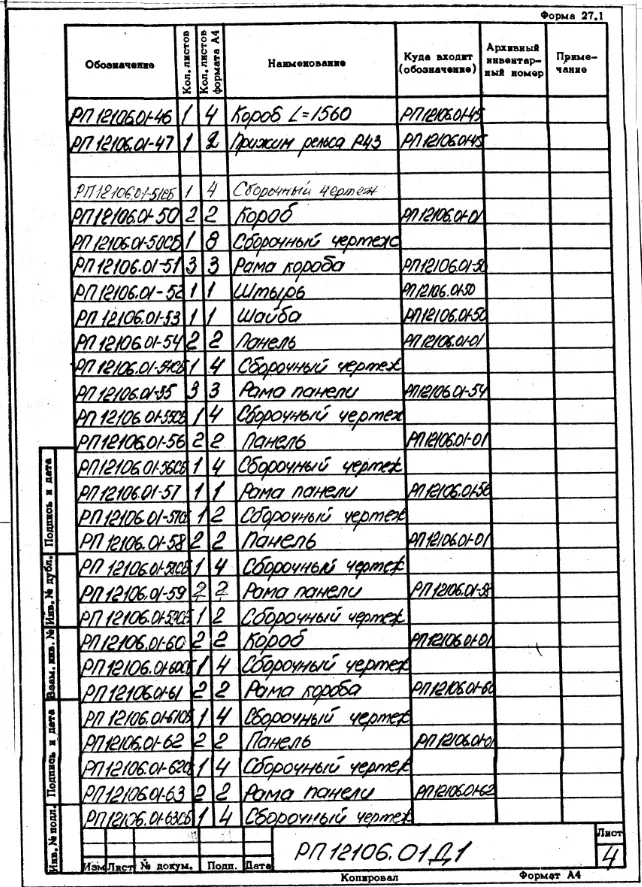 Форма 27.1
Обозначение Кол. листов Кол. листов формата А4 Наименование Куда входит (обозначение) Архивный инвентарный номер Примечание
РП12106.01-46 1 4 Короб L=1560 РП12106.01-45
РП12106.01-47 1 2 Прижим рельса Р43 РП12106.01-45
РП12106.01-51СБ 1 4 Сборочный чертеж
РП12106.01-50 2 2 Короб РП12106.01-01
РП12106.01-50СБ 1 8 Сборочный чертеж
РП12106.01-51 3 3 Рама короба РП12106.01-50
РП12106.01-52 1 1 Штырь РП12106.01-50
РП12106.01-53 1 1 Шайба РП12106.01-50
РП12106.01-54 2 2 Панель РП12106.01-01
РП12106.01-54СБ 1 4 Сборочный чертеж
РП12106.01-55 3 3 Рама панели РП12106.01-54
РП12106.01-55СБ 1 4 Сборочный чертеж
РП12106.01-56 2 2 Панель РП12106.01-01
РП12106.01-56СБ 1 4 Сборочный чертеж
РП12106.01-57 1 1 Рама панели РП12106.01-56
РП12106.01-57СБ 1 2 Сборочный чертеж
РП12106.01-58 2 2 Панель РП12106.01-01
РП12106.01-58СБ 1 4 Сборочный чертеж
РП12106.01-59 2 2 Рама панели РП12106.01-58
РП12106.01-59СБ 1 2 Сборочный чертеж
РП12106.01-60 2 2 Короб РП12106.01-01
РП12106.01-60СБ 1 4 Сборочный чертеж
РП12106.01-61 2 2 Рама короба РП12106.01-60
РП12106.01-61СБ 1 4 Сборочный чертеж
РП12106.01-62 2 2 Панель РП12106.01-01
РП12106.01-62СБ 1 4 Сборочный чертеж
РП12106.01-63 2 2 Рама панели РП12106.01-62
РП12106.01-63СБ 1 4 Сборочный чертеж
Инв. № подл. Подпись и дата Взам. инв. № Инв. № дубл. Подпись и дата
Изм Лист № докум. Подп. Дата
РП12106.01Д1
Лист
4
Копировал Формат А4